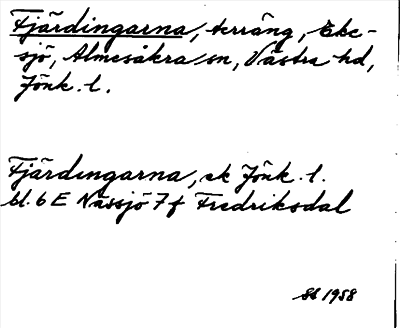 Fjärdingarna, terräng, Eke-
sjö, Almesåkra sn, Västra hd,
Jönk. l.
Fjärdingarna, ek Jönk. l.
bl. 6 E Nässjö 7 f Fredriksdal
1958